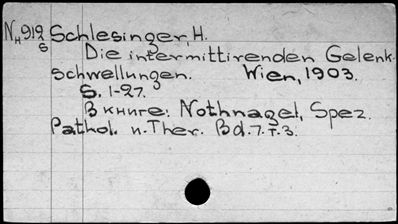 N H 919 Schlesinger, H.
S
Die intermittirenden Gelenk-
schwellungen. Wien, 1903.
S. 1-27.
В книге: Nothnagel, Spez.
Pathol. u. Ther. Bd. 7. T. 3.